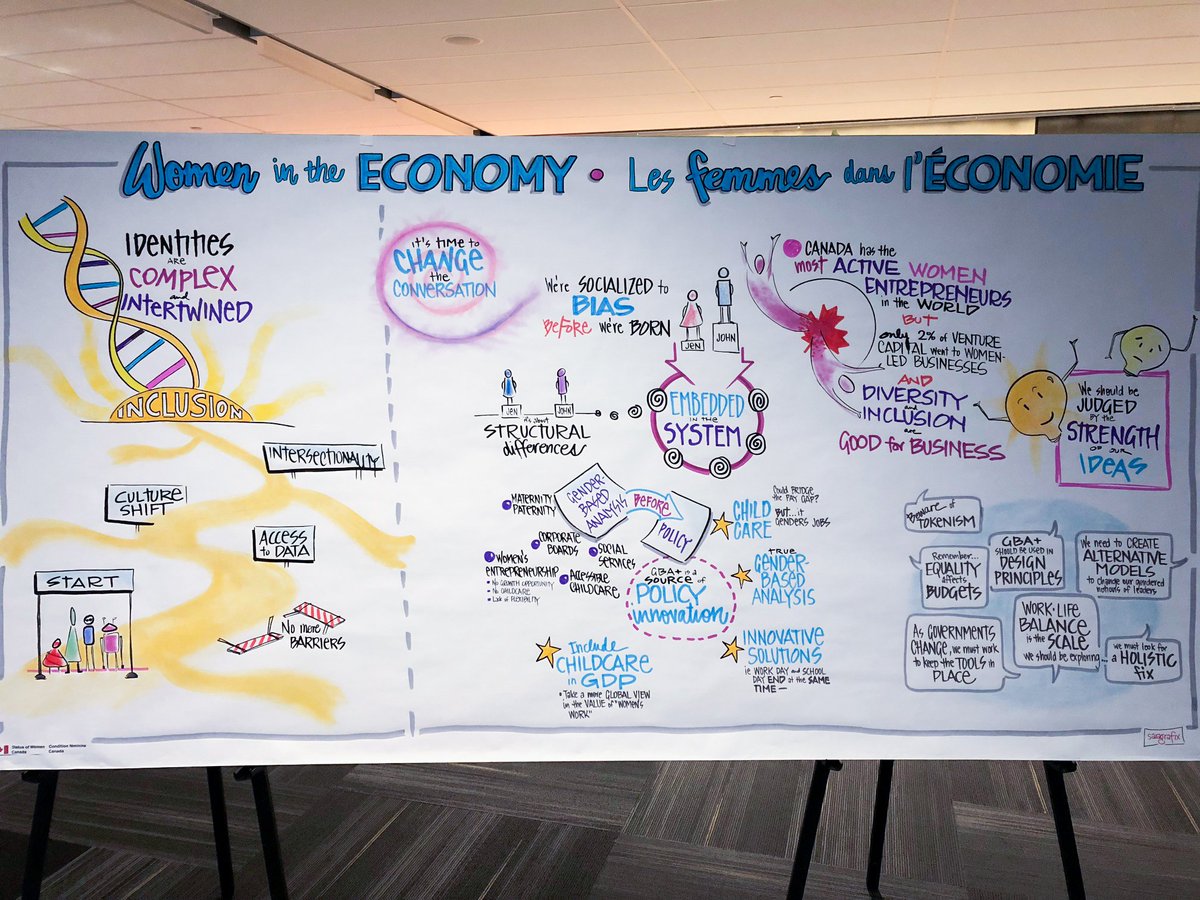 Women in the ECONOMY • Les femmes dans l'ÉCONOMIE
IDENTITIES
ARE
COMPLEX
and
INTERTWINED
INCLUSION
INTERSECTIONALITY
CULTURE
SHIFT
ACCESS
to DATA
START
No more
BARRIERS
Status of Women
Canada
Condition féminine
Canada
it's TIME to
CHANGE
the
CONVERSATION
We're SOCIALIZED to
BIAS
BEFORE we're BORN
JEN
JOHN
JEN
JOHN
it's about
STRUCTURAL
differences
EMBEDDED
in the
SYSTEM
CANADA HAS the
most ACTIVE WOMEN
ENTREPRENEURS
in the WORLD
BUT
only 2% of VENTURE
CAPITAL went to WOMEN-
LED BUSINESSES
AND
DIVERSITY
and
INCLUSION
are
GOOD for BUSINESS
We should be
JUDGED
BY the
STRENGTH
OF OUR
IDEAS
GENDER-
BASED
ANALYSIS
BEFORE
POLICY
MATERNITY
PATERNITY
CORPORATE
BOARDS
SOCIAL
SERVICES
WOMEN'S
ENTREPRENEURSHIP
• NO GROWTH OPPORTUNITY
• NO CHILDCARE
• Lack of FLEXIBILITY
ACCESSIBLE
CHILDCARE
GBA+ is a
SOURCE of
POLICY
innovation
CHILD
CARE
COULD BRIDGE
the PAY GAP?
BUT...it
GENDERS JOBS
TRUE
GENDER-
BASED
ANALYSIS
INNOVATIVE
SOLUTIONS
ie WORK DAY and SCHOOL
DAY END at the SAME
TIME —
Include
CHILDCARE
in GDP
• Take a more GLOBAL VIEW
on the VALUE of "WOMEN'S
WORK"
Beware of
TOKENISM
Remember...
EQUALITY
affects
BUDGETS
GBA+
SHOULD BE USED in
DESIGN
PRINCIPLES
We need to CREATE
ALTERNATIVE
MODELS
to change our gendered
notions of leaders
AS GOVERNMENTS
CHANGE, we must work
to keep the TOOLS in
PLACE
WORK-LIFE
BALANCE
is the SCALE
we should be exploring...
we must look for
a HOLISTIC
fix
saragrafix